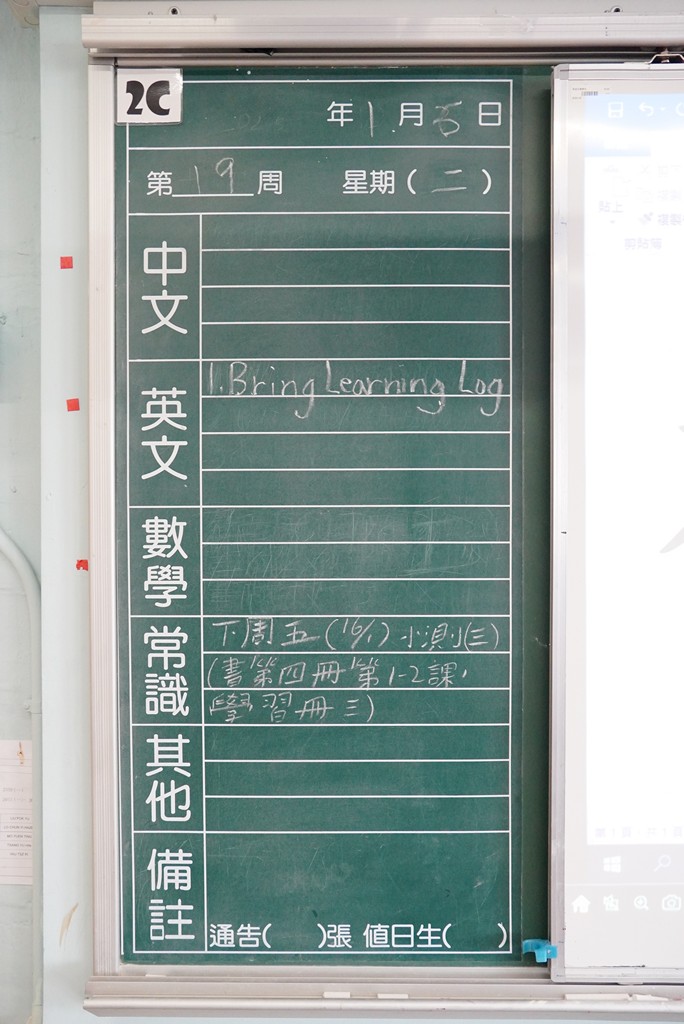 2C
年1月6日
第19周 星期(二)
中文
英文
1. Bring Learning Log
數學
常識
下周五(16/1)小測(三)
(書第四冊第1-2課,
學習冊三)
其他
備註
通告( )張 值日生( )
貼上
剪貼簿